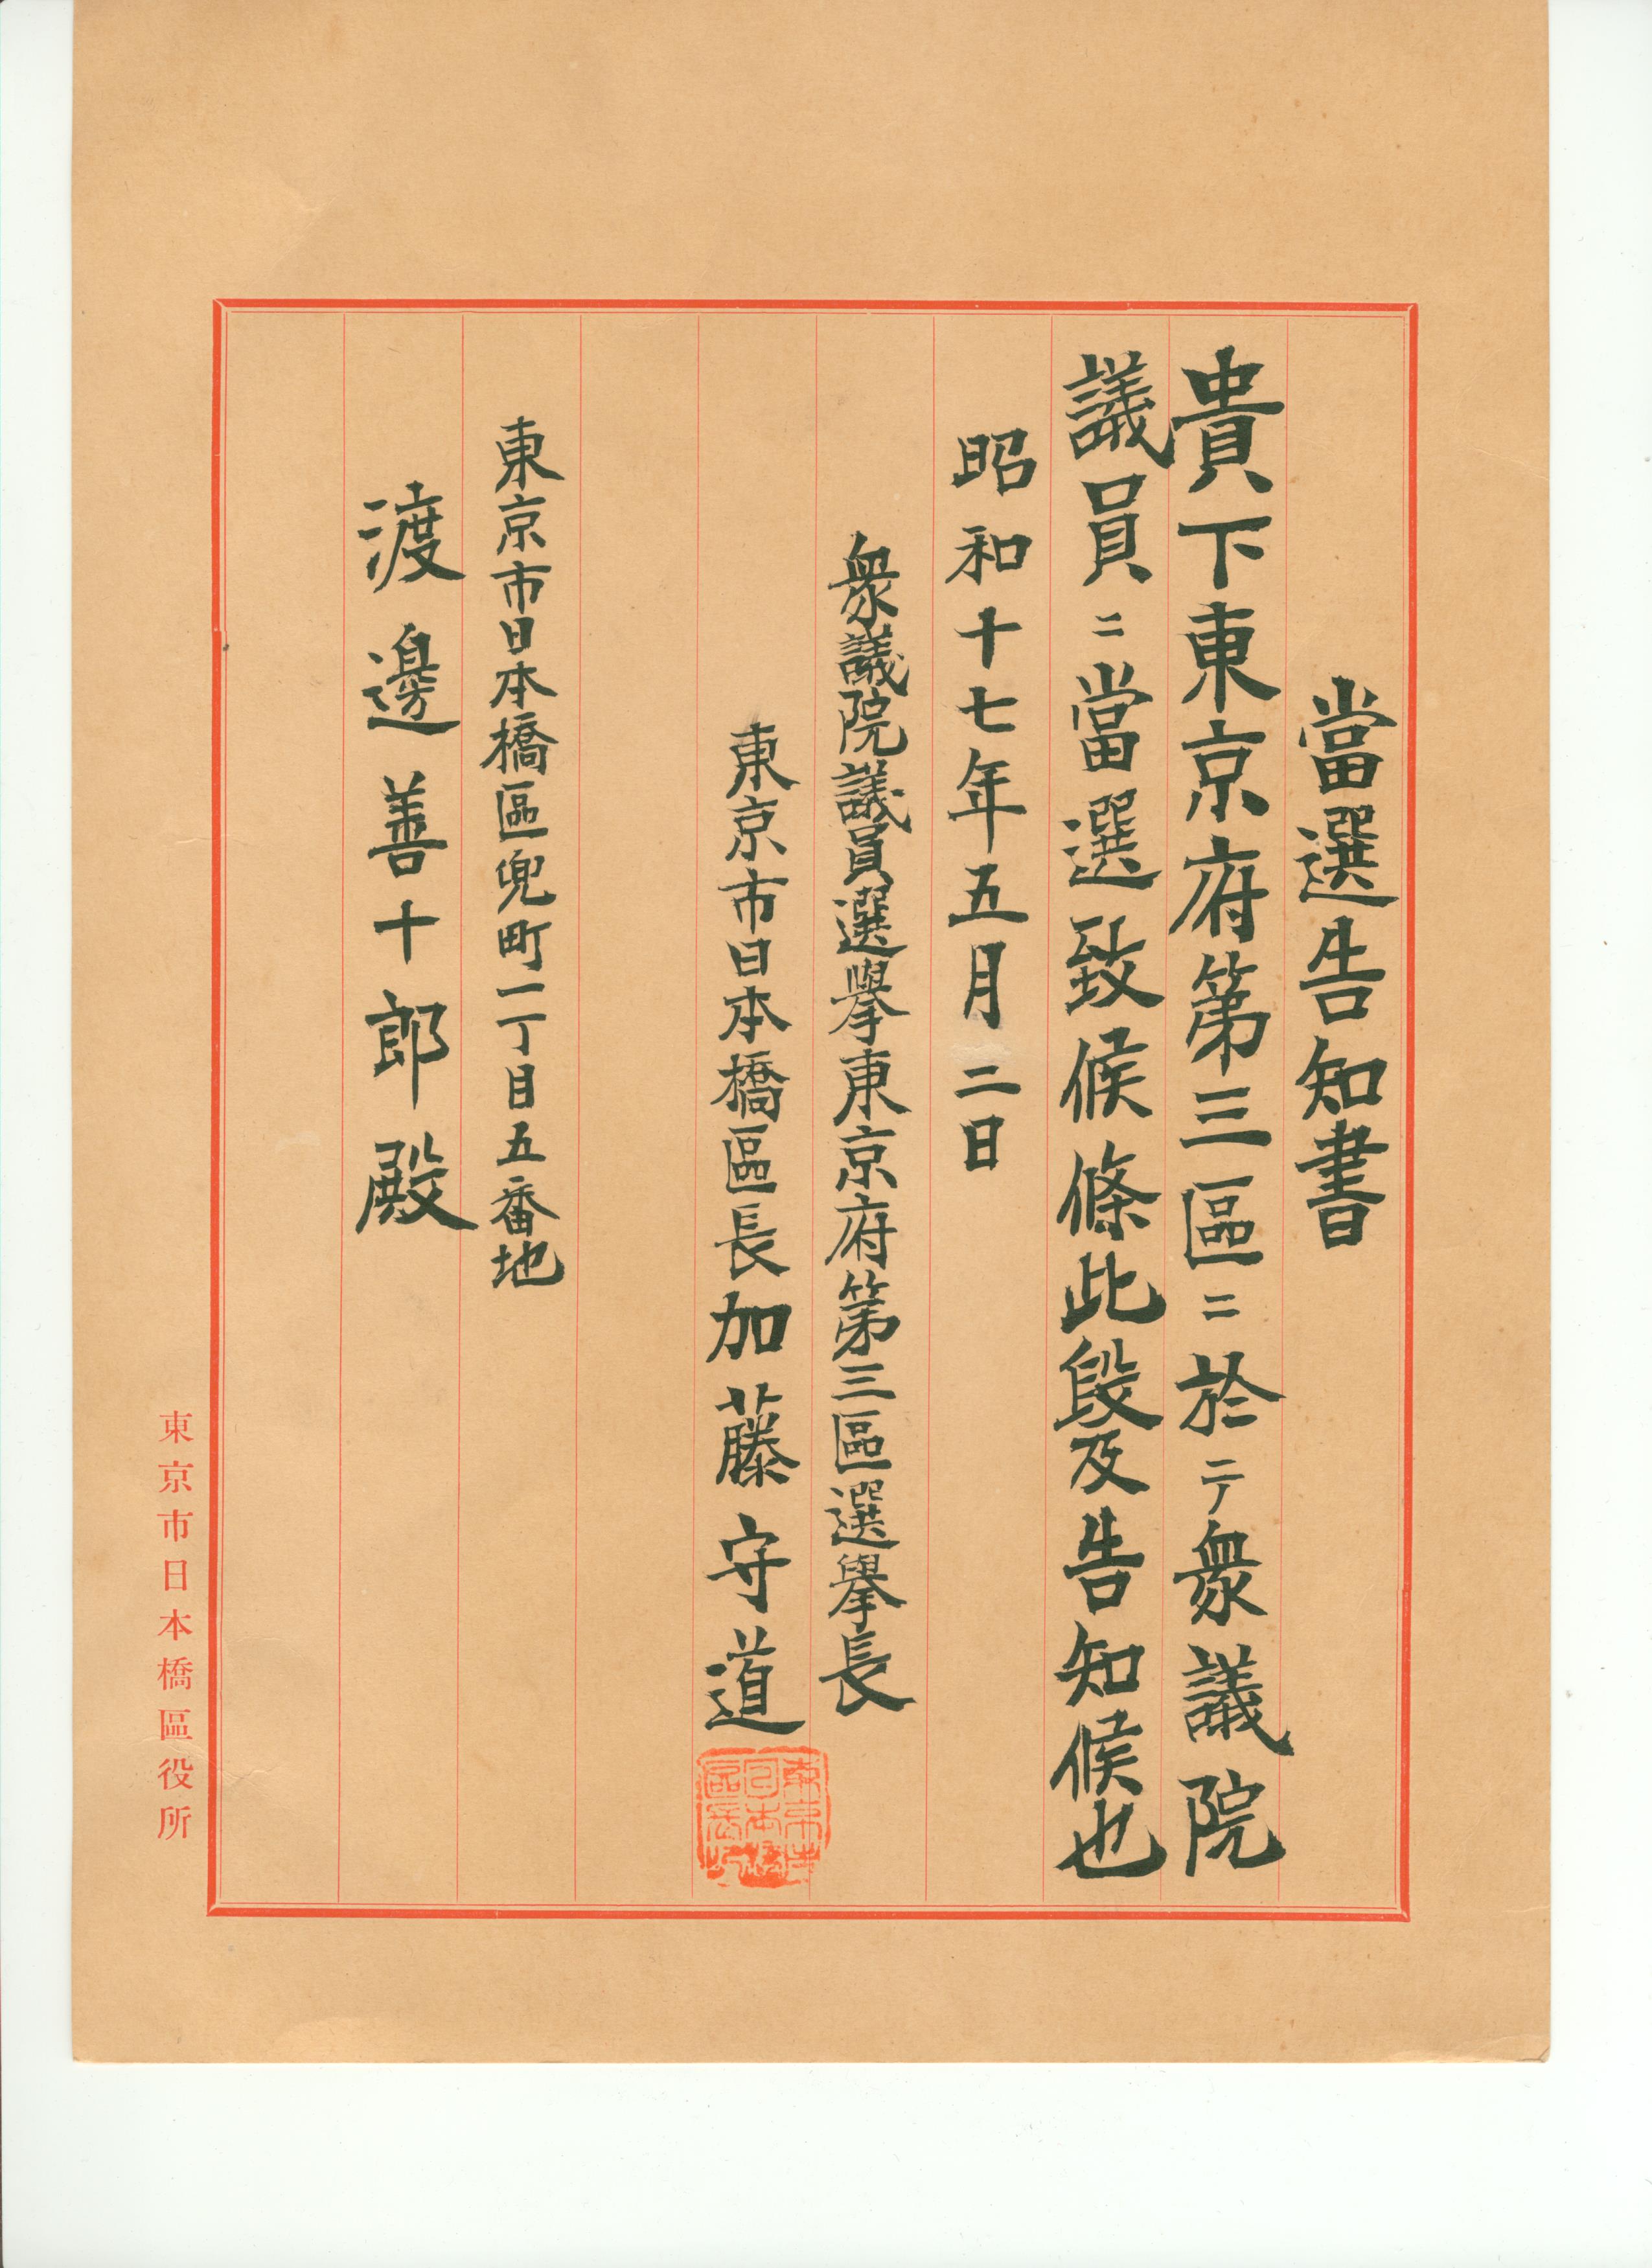 當選告知書
貴下東京府第三區ニ於テ衆議院
議員ニ當選致候條此段及告知候也
昭和十七年五月二日
衆議院議員選擧東京府第三區選擧長
東京市日本橋區長加藤守道
東京市日本橋區兜町一丁目五番地
渡邊善十郎殿
東京市日本橋區役所